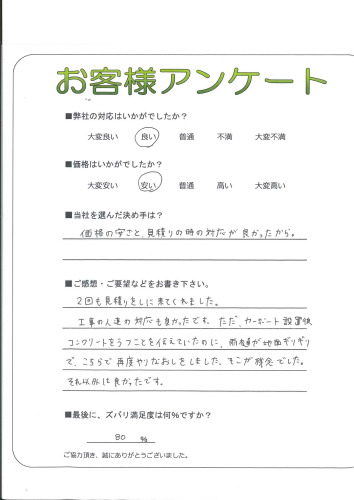 お客様アンケート
■弊社の対応はいかがでしたか?
大変良い 良い 普通 不満 大変不満
■価格はいかがでしたか?
大変安い 安い 普通 高い 大変高い
■当社を選んだ決め手は?
価格の安さと、見積りの時の対応が良かったから。
■ご感想・ご要望などをお書き下さい。
2回も見積りをしに来てくれました。
工事の人達の対応も良かったです。ただ、カーポート設置後
コンクリートをうつことを伝えていたのに、雨樋が地面ギリギリ
で、こちらで再度やりなおしをしました。そこが残念でした。
それ以外は良かったです。
■最後に、ズバリ満足度は何%ですか?
80 %
ご協力頂き、誠にありがとうございました。